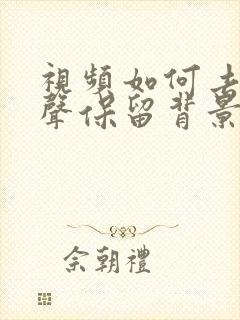 視頻如何去
聲保留背景
佘朝禮